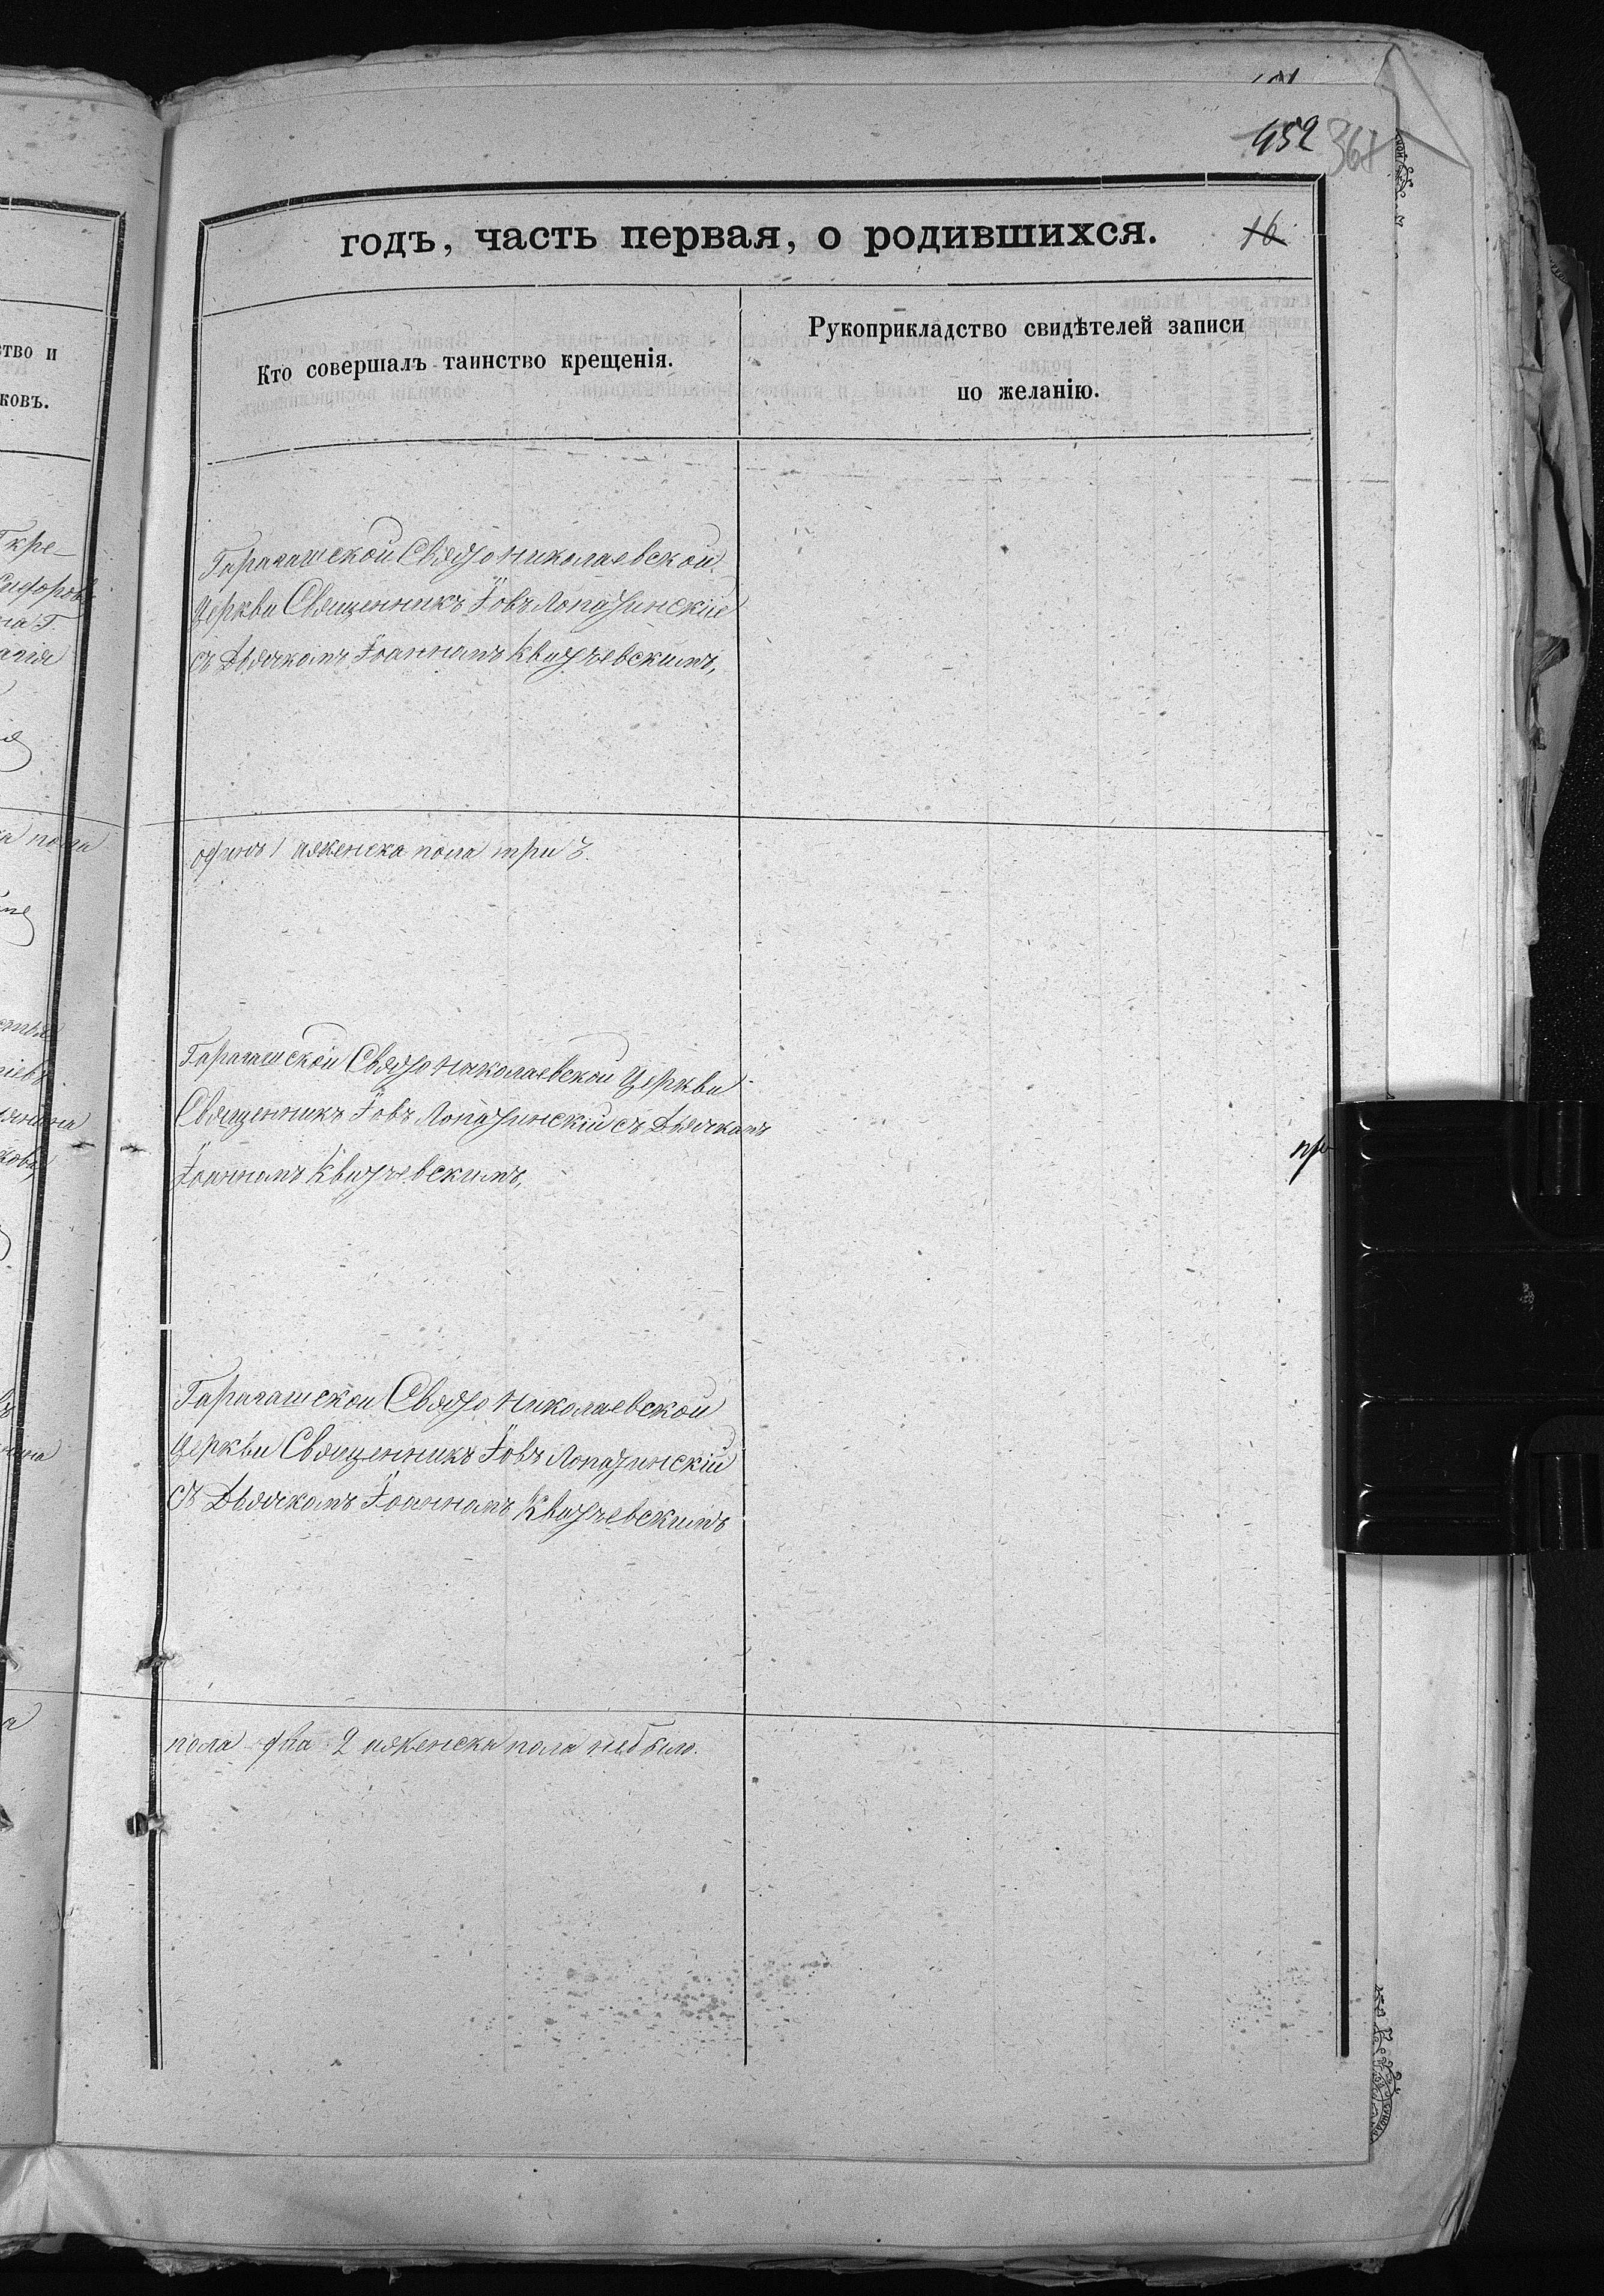 452 367
годъ, часть первая, о родившихся. 16
Кто совершалъ таинство крещенія.
Рукоприкладство свидѣтелей записи
по желанію.
ство и
ковъ.
Гарагашской Свято Николаевской
Церкви Священникъ Іовъ Лопатинскій
съ Дьячкомъ Іоанномъ Квятчевскимъ,
одинъ 1 а женска пола три 3.
Гарагашской Свято Николаевской Церкви
Священникъ Іовъ Лопатинскій съ Дьячкомъ
Іоанномъ Квятчевскимъ,
Гарагашской Свято Николаевской
Церкви Священникъ Іовъ Лопатинскій
съ Дьячкомъ Іоанномъ Квятчевскимъ
пола два 2 а женска пола небыло.